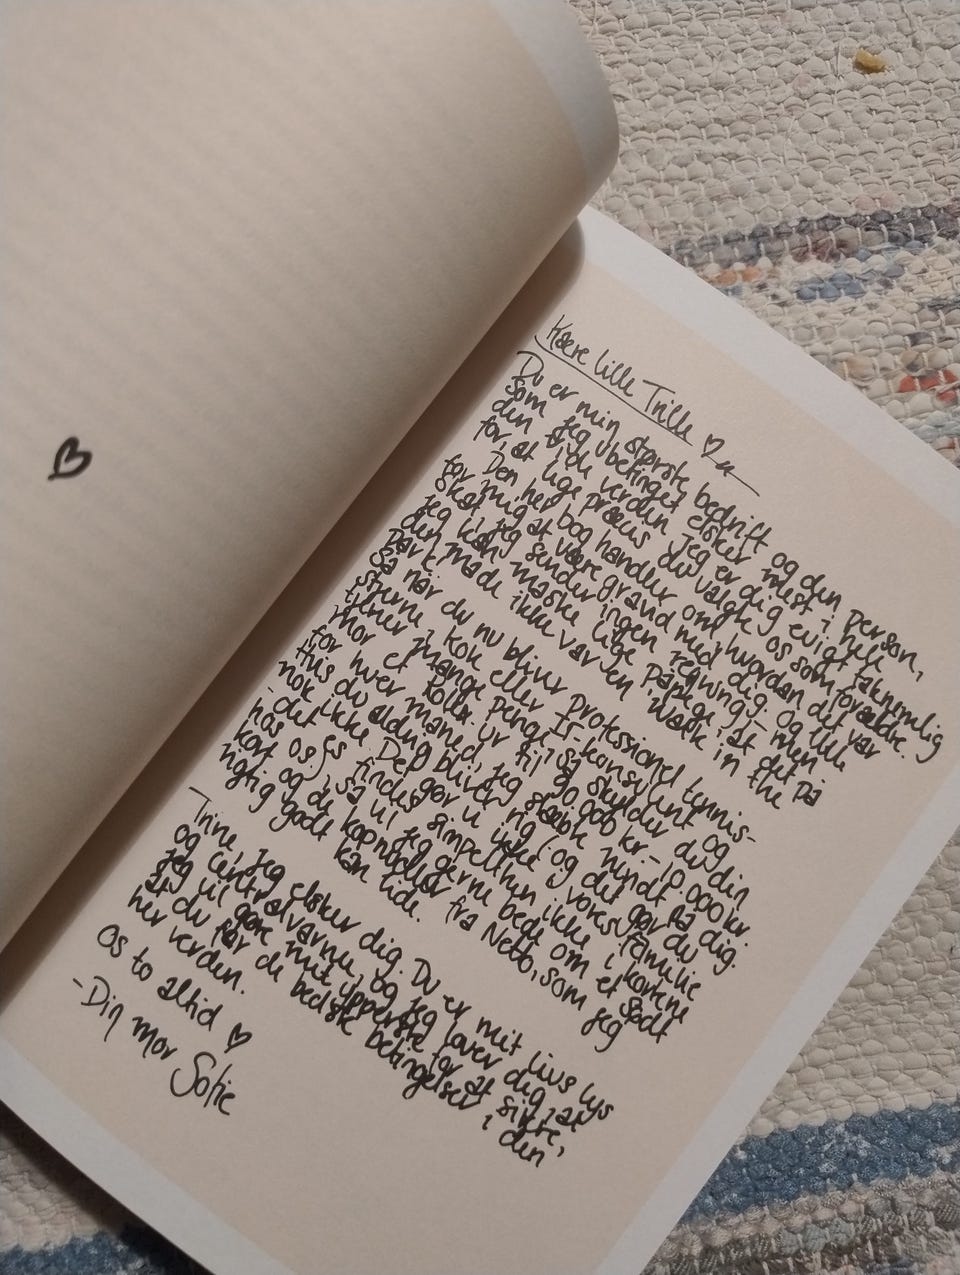 Kære lille Trille
Du er min største bedrift og den person,
som jeg ubetinget elsker mest i hele
den vide verden. Jeg er dig evigt taknemmelig
for, at lige præcis du valgte os som forældre.
Den her bog handler om, hvordan det var
for mig at være gravid med dig. Og lille
skat, jeg sender ingen regning, men
jeg kan måske lige påpege, at det på
den måde ikke var en walk in the
park.
Så når du nu bliver professionel tennis-
stjerne, kok eller IT-konsulent og
tjener mange penge, så skylder du din
mor et Rolex ur til 90.000 kr.- 10.000 kr.
for hver måned, jeg slæbte rundt på dig.
Hvis du aldrig bliver rig (og det gør du
nok ikke. Det gør vi ikke i vores familie
- det findes simpelthen ikke i kortene
hos os.), så vil jeg gerne bede om et sødt
kort og de kopnudler fra Netto, som jeg
rigtig godt kan lide.
Trine, jeg elsker dig. Du er mit livs lys
og centralvarme, og jeg lover dig, at
jeg vil gøre mit ypperste for at sikre,
at du får de bedste betingelser i den
her verden.
Os to altid
-Din mor Sofie